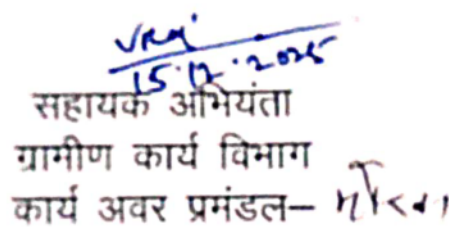 15.12.2025
सहायक अभियंता
ग्रामीण कार्य विभाग
कार्य अवर प्रमंडल–